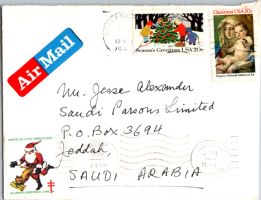 Air Mail
Season's Greetings USA 20c
Christmas USA 20c
Mr. Jesse Alexander
Saudi Parsons Limited
P.O. Box 3694
Jeddah,
SAUDI ARABIA